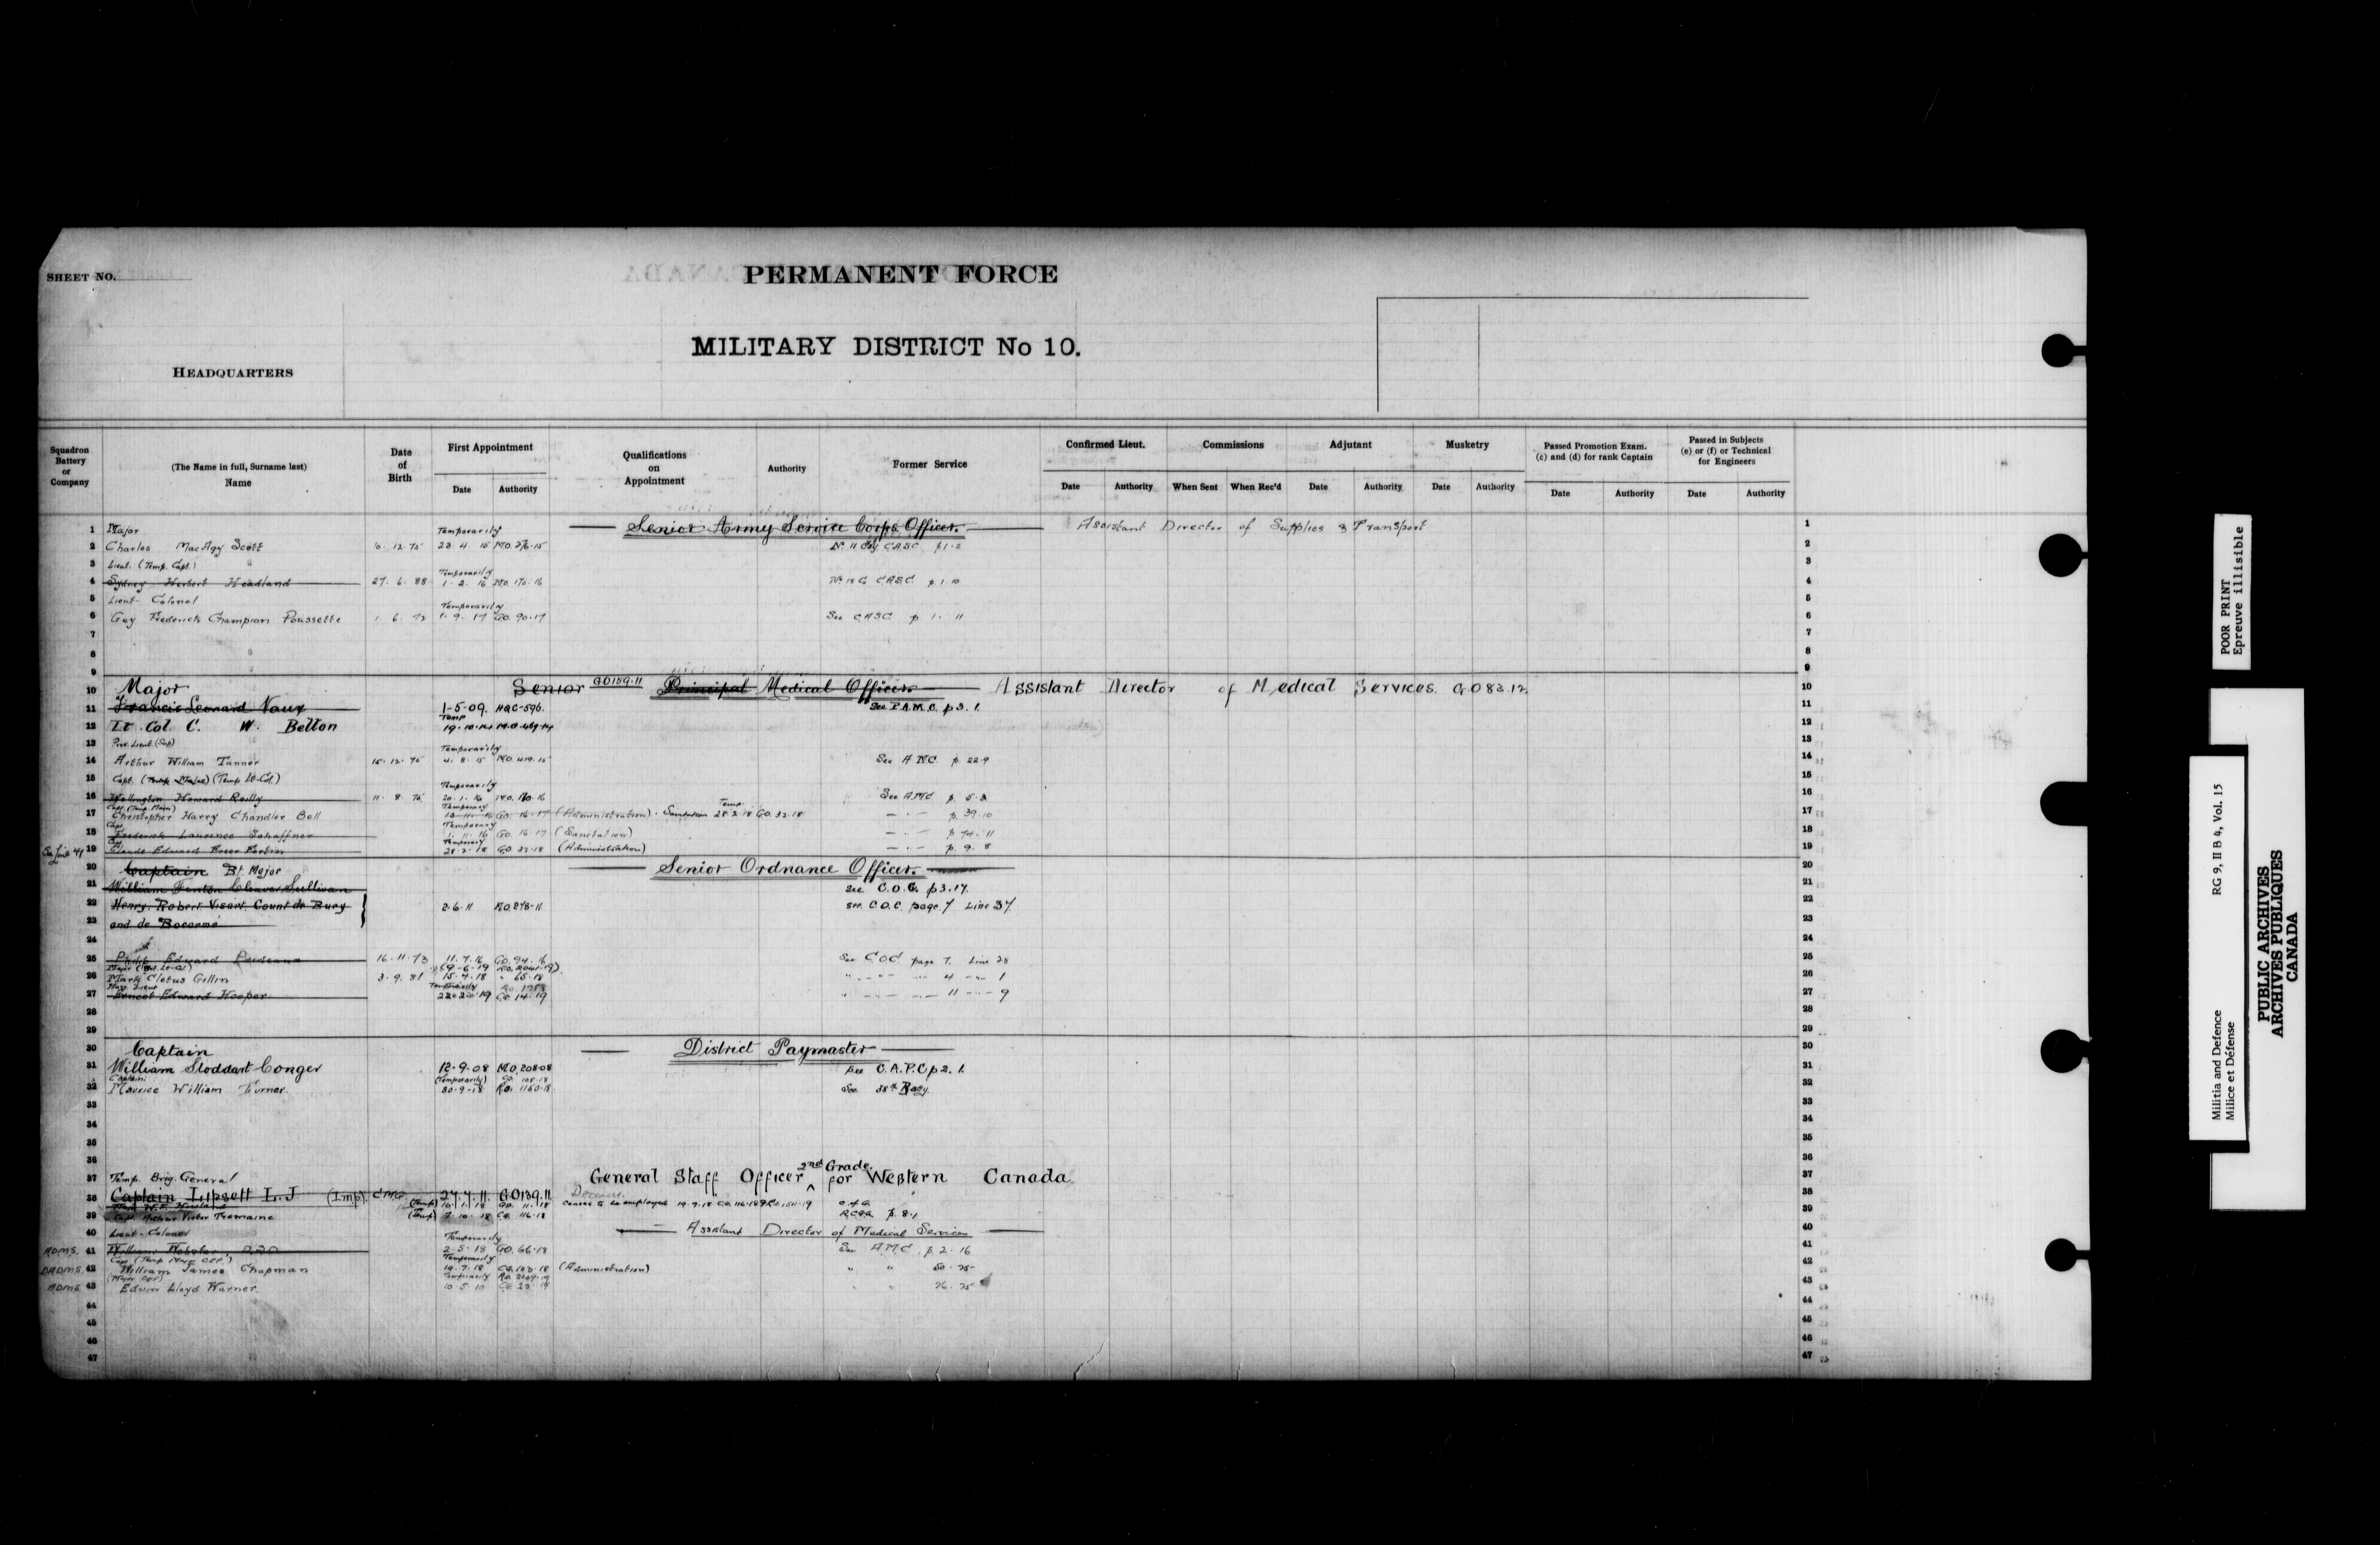 SHEET NO.
PERMANENT FORCE
MILITARY DISTRICT No 10.
HEADQUARTERS
Squadron Battery or Company
(The Name in full, Surname last) Name
Date of Birth
First Appointment Date Authority
Qualifications on Appointment
Authority
Former Service
Confirmed Lieut. Date Authority
Commissions When Sent When Rec'd
Adjutant Date Authority
Musketry Date Authority
Passed Promotion Exam. (c) and (d) for rank Captain Date Authority
Passed in Subjects (e) or (f) or Technical for Engineers Date Authority
1 Major Temporarily Senior Army Service Corps Officer. Assistant Director of Supplies & Transport 1
2 Charles MacAgy Scott 6.12.75 23.4.15 CASC p 1.2 2
3 Lieut. (Temp. Capt.) Temporarily 3
4 Sydney Herbert Headland 27.6.88 1.2.16 MO. 170.16 CASC p 1.10 4
5 Lieut-Colonel Temporarily 5
6 Guy Frederick Champion Poussette 1.6.72 1.9.17 GO. 90.17 See CASC p 1. 11 6
7 7
8 8
9 9
10 Major Senior GO159.11 Principal Medical Officer. Assistant Director of Medical Services. GO 83.12. 10
11 Francis Leonard Vaux 1-5-09. HQC-596. See P.A.M.C. p 3. 1. 11
12 Lt. Col. C. W. Belton Temp 19.10.14 M.O. 469.14 12
13 Prov. Lieut. (Sup) Temporarily 13
14 Arthur William Tanner 15.12.75 4.8.15 MO. 419.15 See AMC. p. 22.9 14
15 Capt. (Temp Major) (Temp Lt-Col.) Temporarily 15
16 Wellington Howard Reilly 11.8.75 20.1.16 MO. 170.16 See AMC p. 5.2 16
Capt. (Temp Major) Temporary Temp.
17 Christopher Harry Chandler Bell GO. 16.17 (Administration). Sanitation 28.2.18 GO. 32.18 p. 39.10 17
Capt Temporary
18 Frederick Laurence Schaffner 1.11.16 GO. 16.17 (Sanitation) p 74. 11 18
Temporary
See Line 41 19 28.2.18 GO. 32.18 (Administration) p. 9. 8 19
20 Captain Bt Major Senior Ordnance Officer. 20
21 William Fenton Cleaver Sullivan see C.O.C. p 3.17. 21
22 Henry Robert Visart Count de Bury 2-6-11 MO 278-11 see C.O.C. page 7 Line 37. 22
23 and de Bocarmé 23
24 24
25 Philip Edward Prideaux 16.11.73 11.7.16 GO. 94.16 See COC page 7. Line 28 25
26 Mark Cletus Gillin 3.9.81 15.4.18 " 65.18 " 4 " 1 26
Temporarily
27 Ernest Edward Hooper 22.2.19 CO. 14.19 " 11 9 27
28 28
29 29
30 Captain District Paymaster 30
31 William Stoddart Conger 12-9-08 MO. 208-08 see C.A.P.C p 2. 1. 31
Captain (Temporarily) GO. 108.18
32 Maurice William Turner. 30-9-18 RO. 1160.18 See 38th Batty. 32
33 33
34 34
35 35
36 36
37 Temp. Brig. General General Staff Officer 2nd Grade. for Western Canada 37
38 Captain Lipsett L.J. (Imp). CMG 27.7.11. GO139.11 38
(Temp) 10.1.18 GO. 11.18 Ceases to be employed
39 Capt. Arthur Victor Tremaine (Temp) 7.10.18 CO. 116.18 RCGA p. 8.1 39
40 Lieut-Colonel Temporarily Assistant Director of Medical Services 40
ADMS. 41 William Webster, DSO 2-5-18 GO. 66-18 See AMC. p. 2. 16 41
Temporarily
DADMS. 42 William James Chapman 19.7.18 (Administration) " " 50.25 42
(Major CEF) Temporarily
ADMS 43 Edwin Lloyd Warner. " " 76.25 43
44 44
45 45
46 46
47 47
POOR PRINT
Epreuve illisible
RG 9, II B 4, Vol. 15
Militia and Defence
Milice et Défense
PUBLIC ARCHIVES
ARCHIVES PUBLIQUES
CANADA